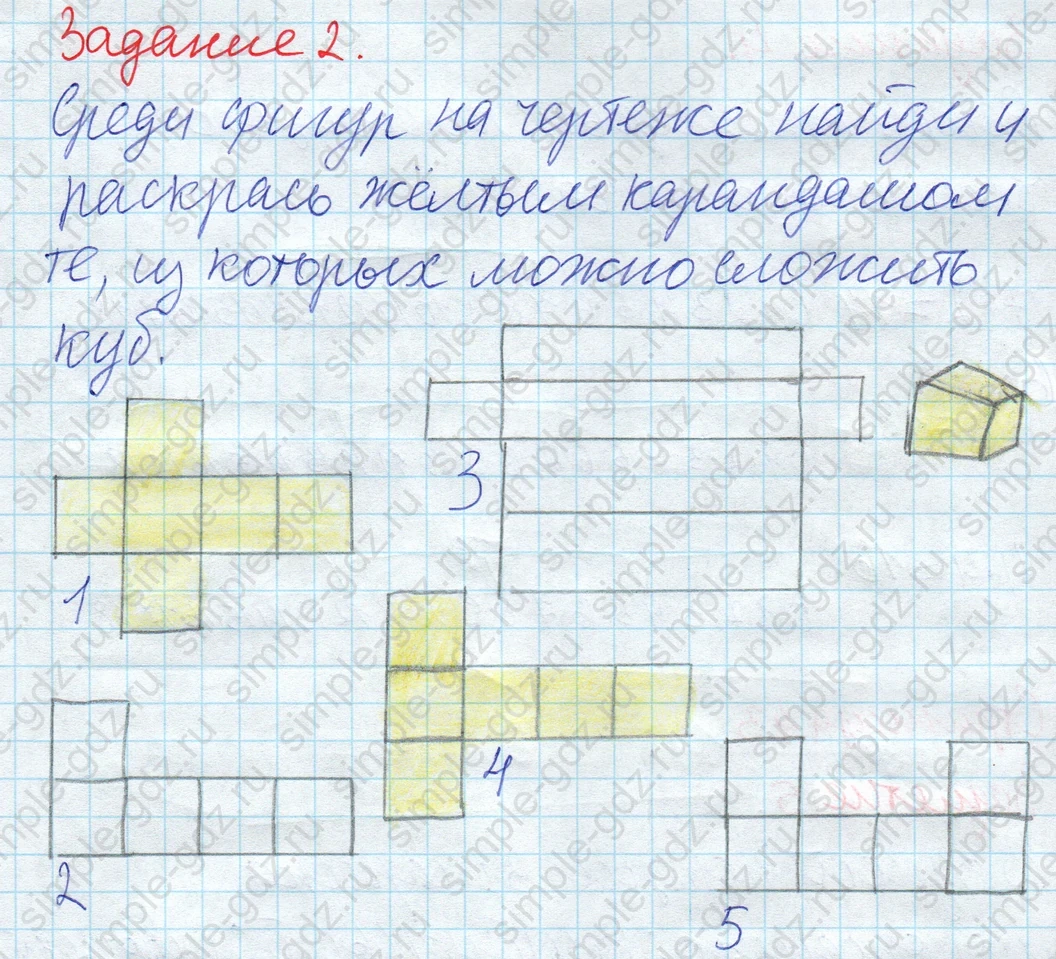 Задание 2.
Среди фигур на чертеже найди и
раскрась жёлтым карандашом
те, из которых можно сложить
куб.
3
1
4
2
5
simple-gdz.ru